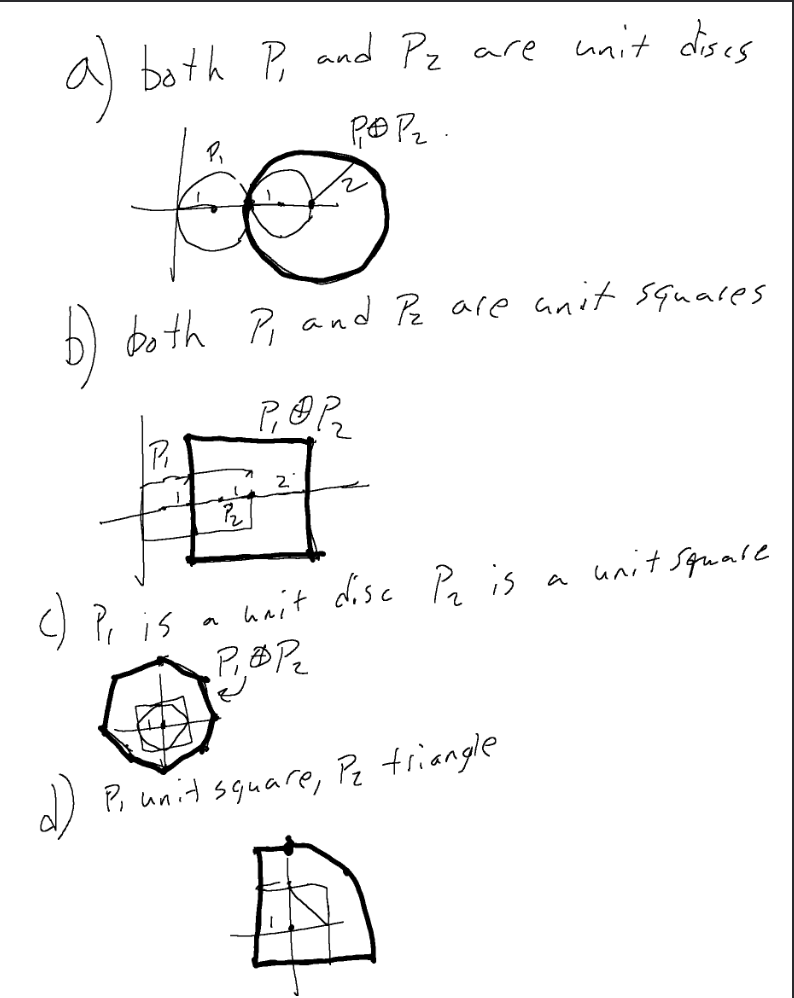 a) both P₁ and P₂ are unit discs
P₁⊕P₂.
P₁
1 1 2
b) both P₁ and P₂ are unit squares
P₁⊕P₂
P₁
1 1 2
P₂
c) P₁ is a unit disc P₂ is a unit square
P₁⊕P₂
1
d) P₁ unit square, P₂ triangle
1